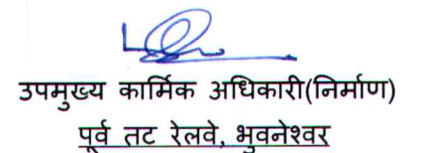 उपमुख्य कार्मिक अधिकारी(निर्माण)
पूर्व तट रेलवे, भुवनेश्वर